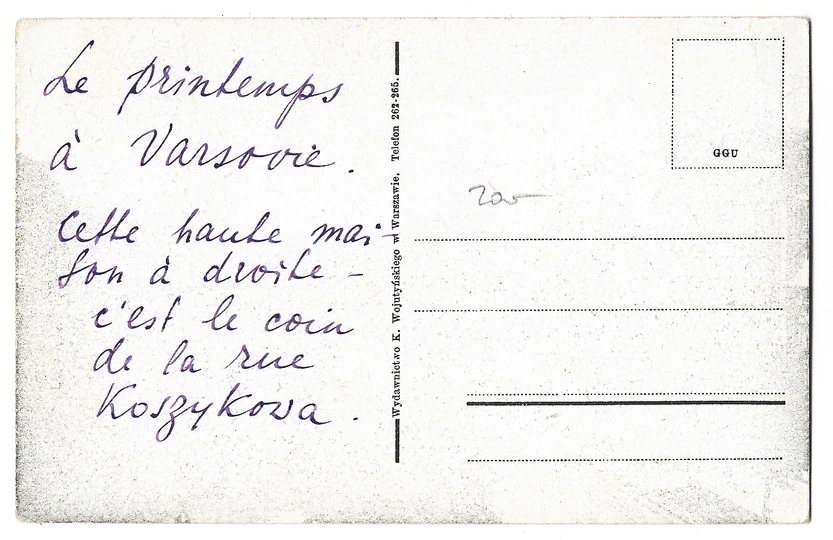 Le printemps
à Varsovie.
Cette haute mai-
son à droite –
c'est le coin
de la rue
Koszykowa.
Wydawnictwo K. Wojutyńskiego w Warszawie, Telefon 262-265.
GGU